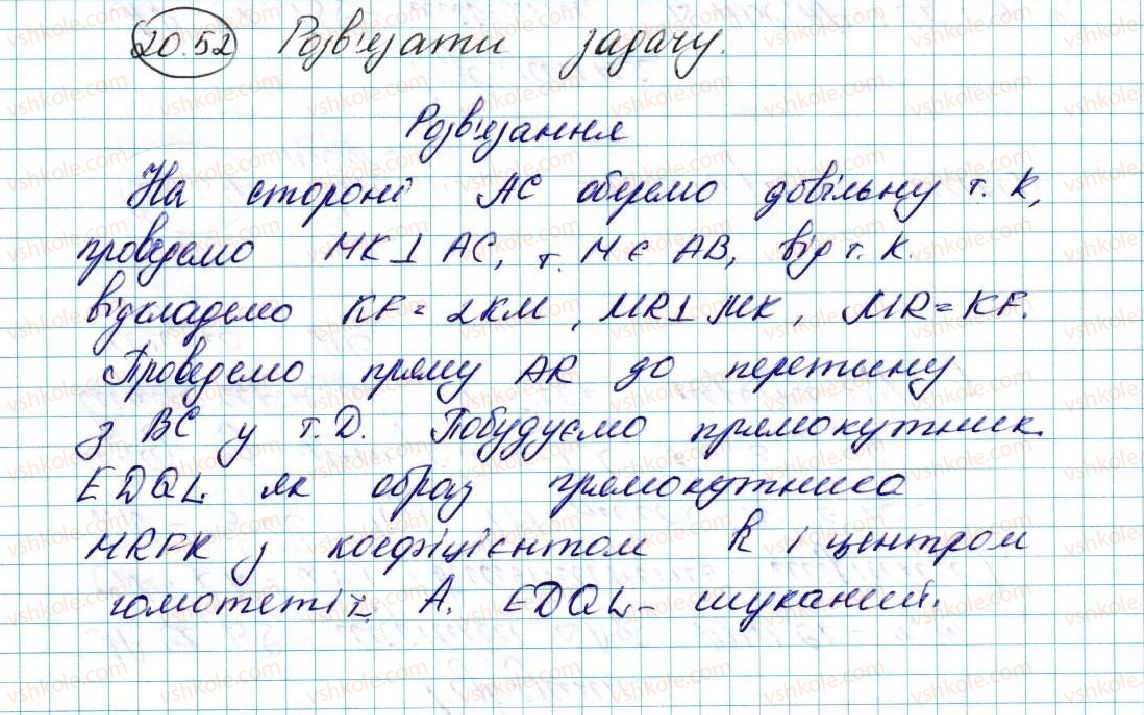 20.52 Розв'язати задачу.
Розв'язання
На стороні AC оберемо довільну т. K,
проведемо MK⊥AC, т. M є AB, від т. K.
відкладемо KF = 2KM, MR⊥MK, MR = KF.
Проведемо пряму AR до перетину
з BC у т. D. Побудуємо прямокутник
EDQL як образ прямокутника
MRFK з коефіцієнтом k і центром
гомотетії т. A. EDQL - шуканий.